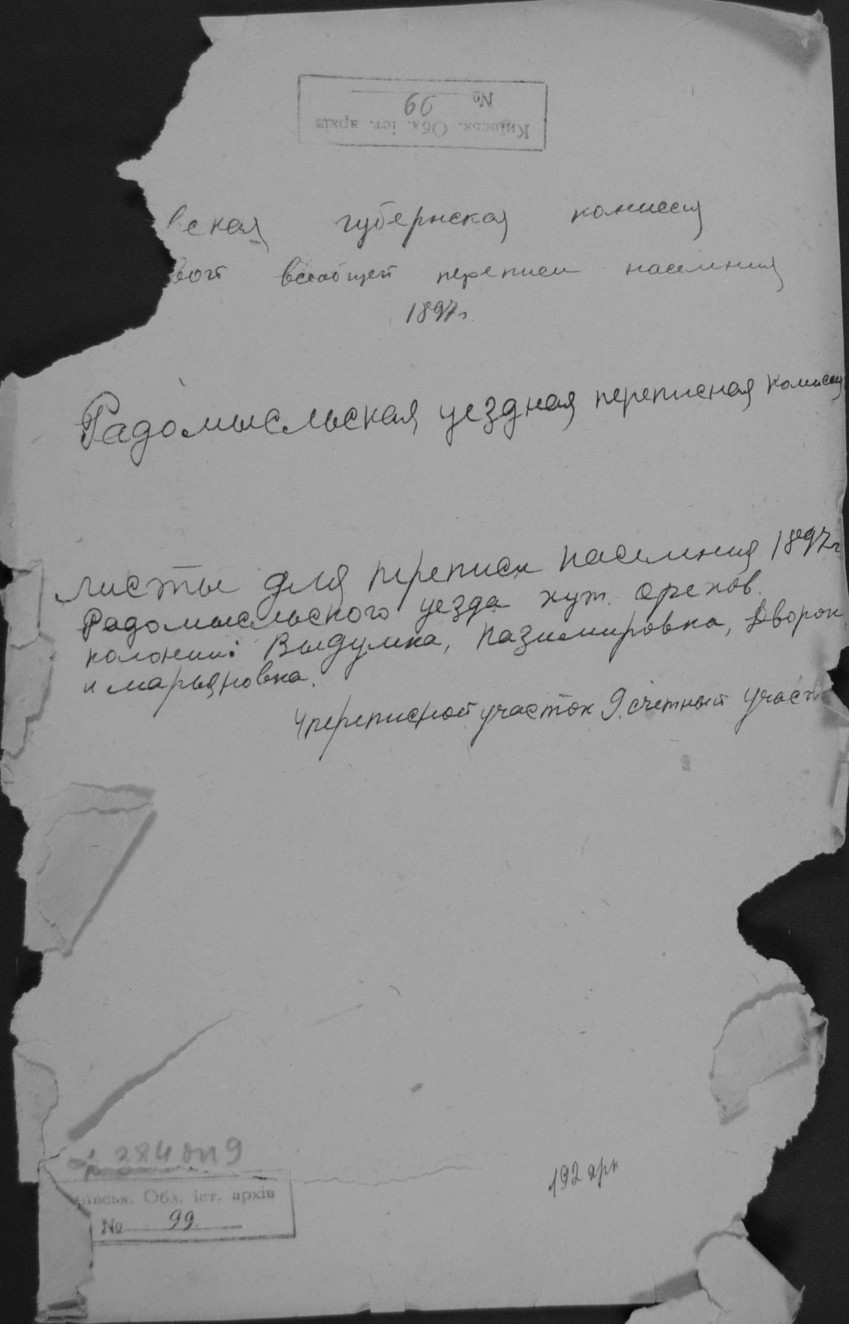 Київськ. Обл. іст. архів
№ 99
вская губернская комиссия
вой всеобщей переписи населения
1897 г.
Радомысльская уездная переписная комисси
Листы для переписи населения 1897 г
Радомысльского уезда хут. Орехов.
колоний: Выдумка, Казимировка, Дворок,
и Марьяновка.
4 переписной участок 9. счетный участ
ф 284 оп 9
ївськ. Обл. іст. архів
№ 99
192 арк